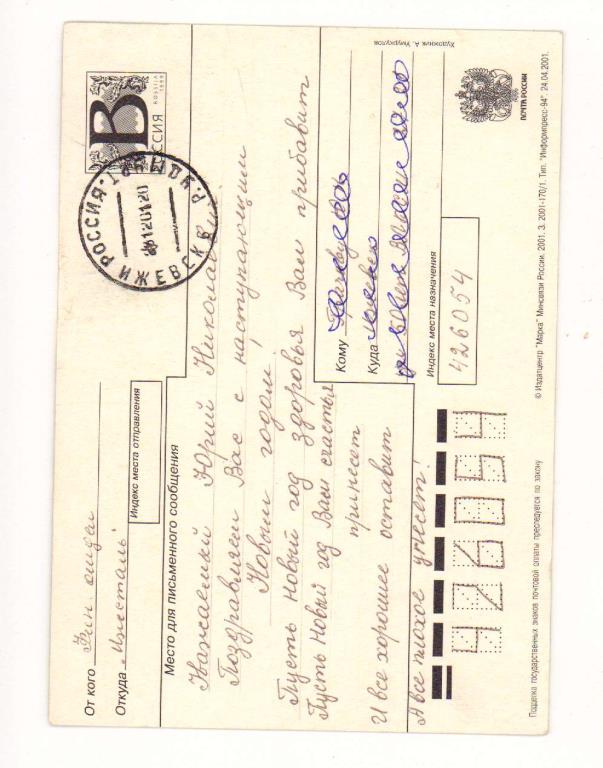 От кого Фин. отдел
Откуда "Ижсталь"
Индекс места отправления
В
РОССИЯ
ROSSIJA
1998
РОССИЯ
ИЖЕВСК
Место для письменного сообщения
Уважаемый Юрий Николаевич!
Поздравляем Вас с наступающим
Новым годом!
Пусть Новый год здоровья Вам прибавит
Пусть Новый год Вам счастья
принесет
И все хорошее оставит
А все плохое унесет!
Кому
Куда Ижевск
Индекс места назначения
426054
426054
Художник А. Умуркулов
ПОЧТА РОССИИ
© Издатцентр "Марка" Минсвязи России. 2001. З. 2001-170/1. Тип. "Информпресс-94". 24.04.2001.
Подделка государственных знаков почтовой оплаты преследуется по закону